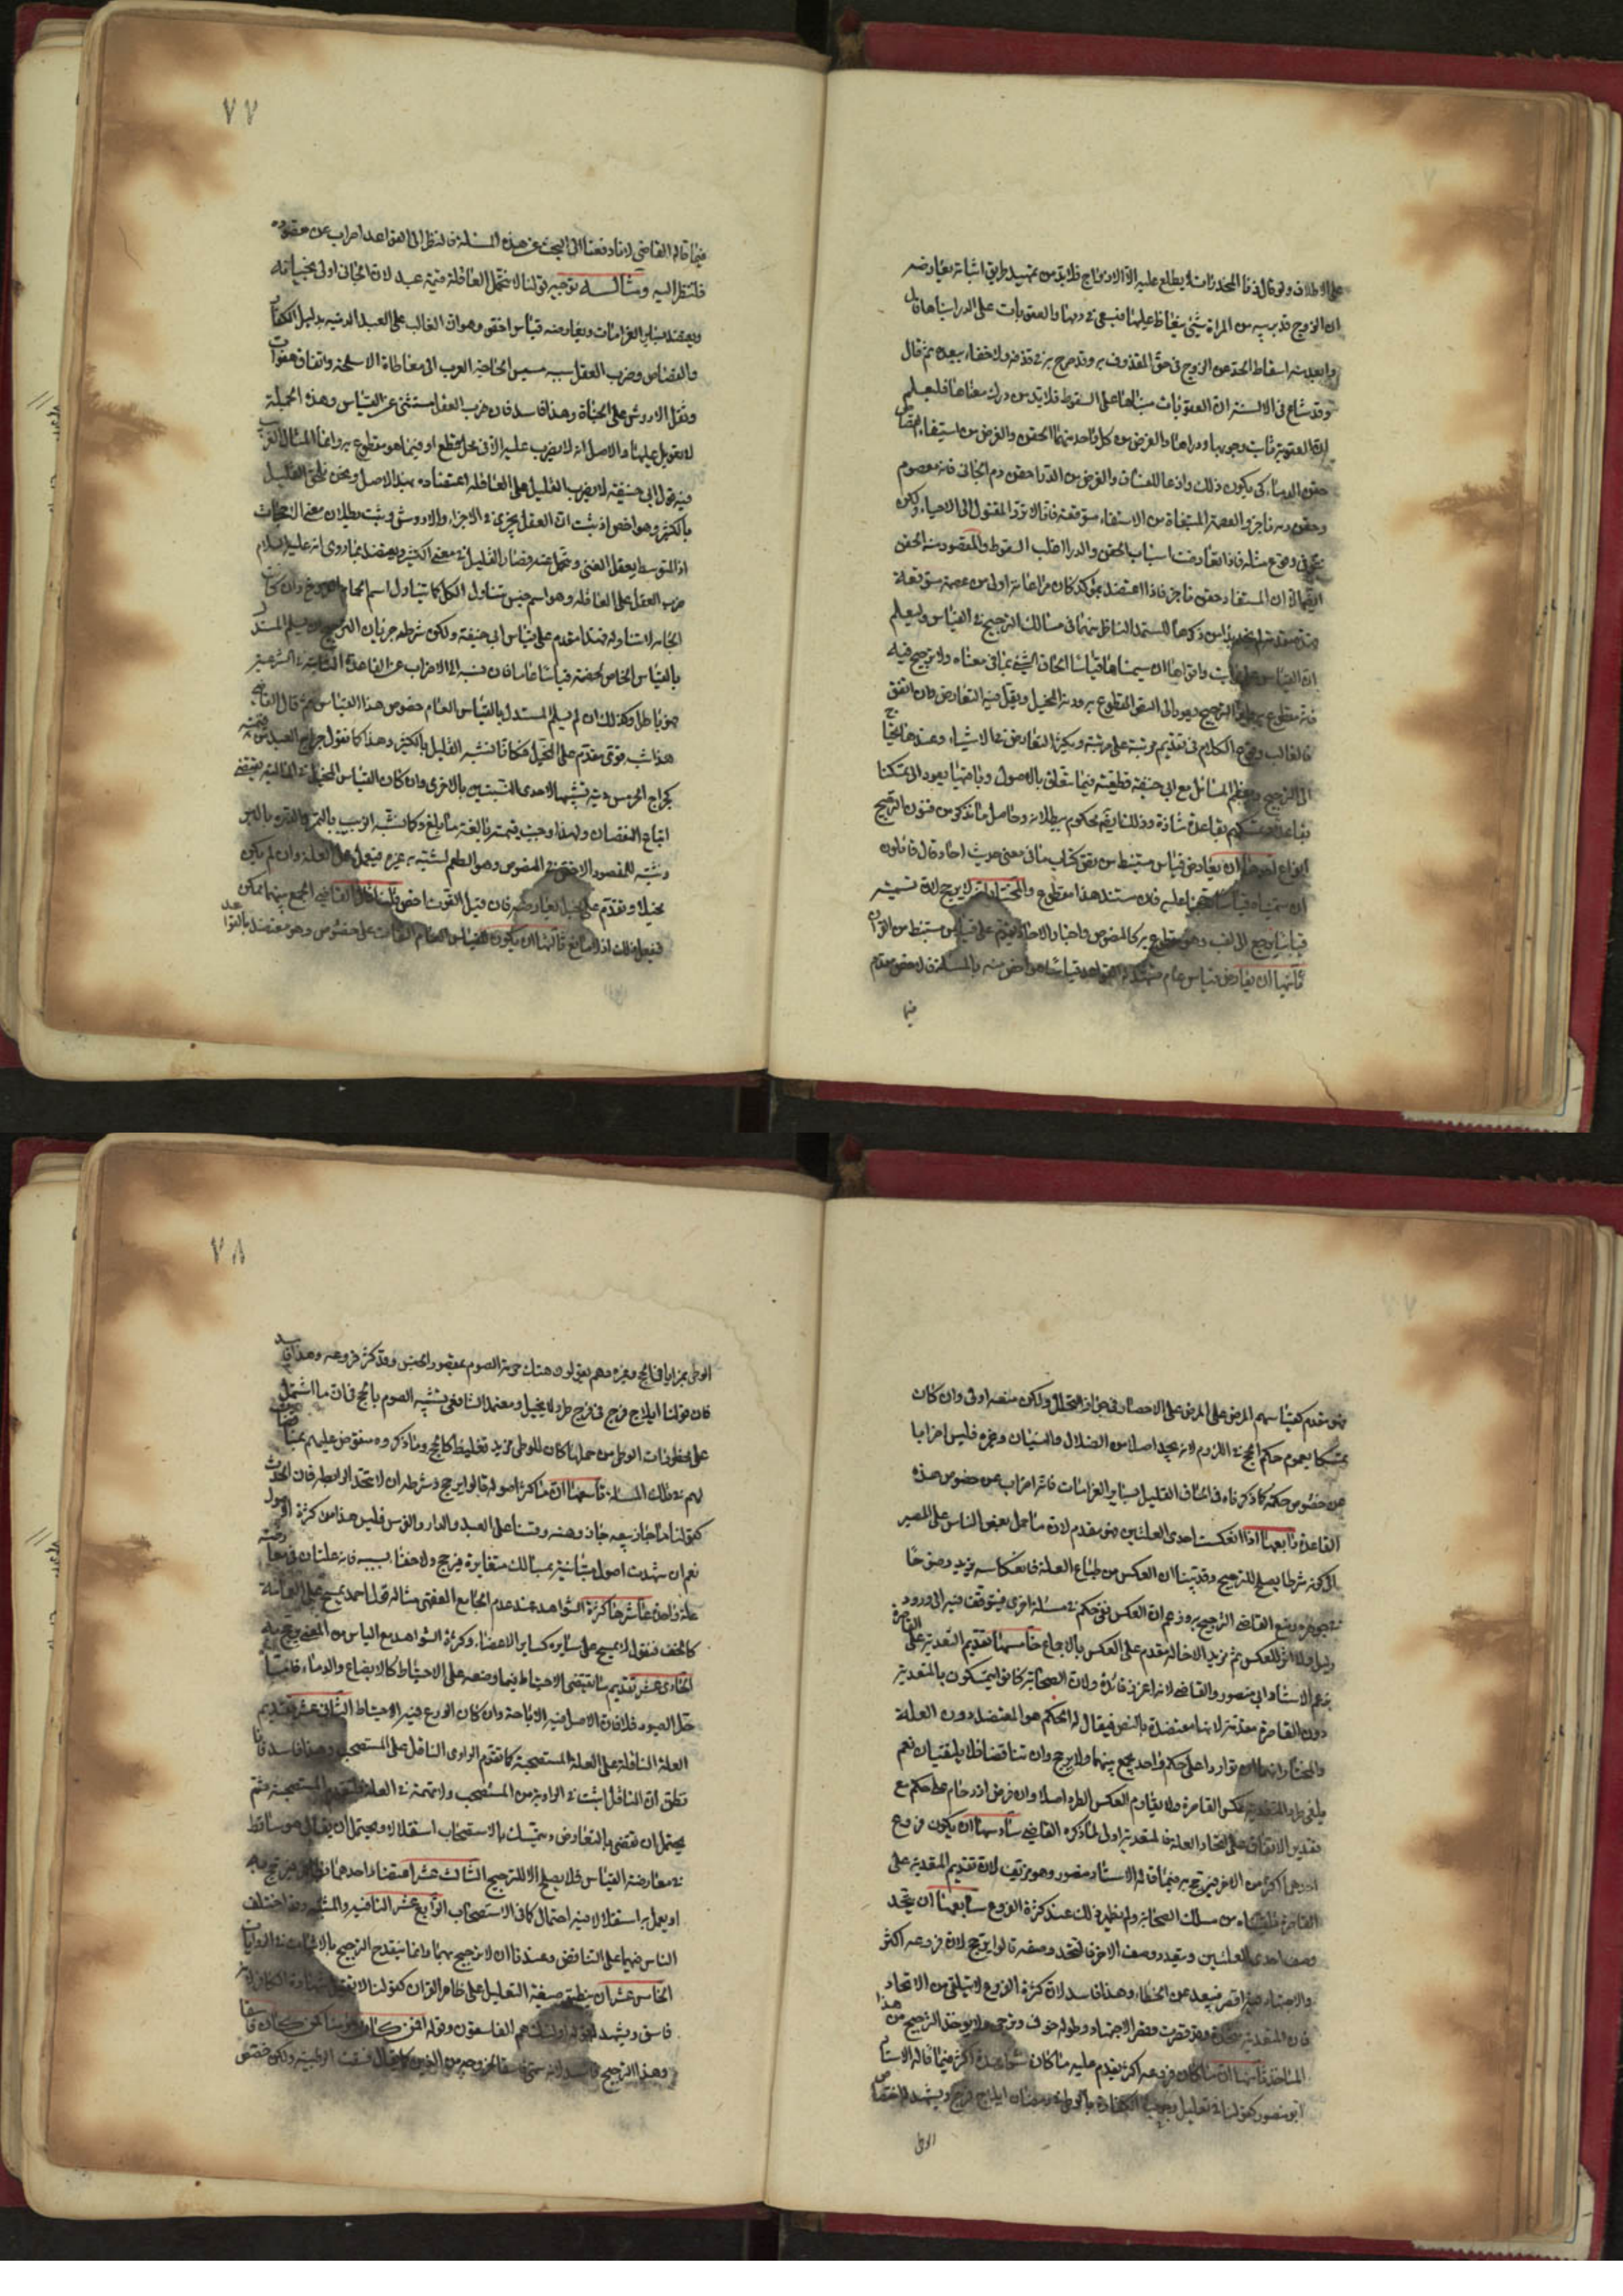 على الاطلاق ولو قال زنا المخدرات لا يطلع عليه الا الازواج فلا بد من تمهيد طريق اثباته يعارضه
ان الزوج قد يريبه من المراة شيء يغتاظ عليها فيسعى في دمها والعقوبات على الدرا مبناها قال
وابعد منه اسقاط الحد عن الزوج في حق المقذوف به وقد صرح به في قذفه ولا خفاء ببعده ثم قال
وقد شاع في الالسنة ان العقوبات مبناها على السقوط فلا بد من درك معناها فليعلم
ان العقوبة ثابت وجوبها ودراها والغرض من كل واحد منهما الحقن والغرض من استيفاء القصاص
حقن الدماء كي يكون ذلك وازعا للفساق والغرض من الدرا حقن دم الجاني فانه معصوم
وحقن دمه ناجز والعصمة المبتغاة من الاستيفاء متوقعة فانا لا نرد المقتول الى الاحياء ولكن
في وقوع مثله فاذا تعارضت اسباب الحقن والدرا اغلب السقوط والمقصود منه الحقن
ان المستفاد حقن ناجز فاذا اعتضد بمؤكد كان مراعاته اولى من عصمة متوقعة
من ذكرها ليستمد الناظر منها في مسالك الترجيح في القياس وليعلم
ان القياس وافواها ان سميناها قياسا الحاق الشيء بما في معناه ولا ترجيح فيه
فانه مقطوع به الترجيح ويعود الى النسق المقطوع به ودونه المخيل ويقل فيه التعارض وان اتفق
فالغالب الكلام في تقديم مرتبة على مرتبة ويكثر التعارض في الاشباه وعندها يلتجا
الى الترجيح ومعظم المسائل مع ابي حنيفة قطعية فيما يتعلق بالاصول وباقيها يعود الى تمسكنا
بقاعدة وتمسكهم بقاعدة شاذة وذلك تارة محكوم ببطلانه وحاصل ما نذكره من فنون الترجيح
انواع احدها ان يعارض قياس مستنبط من نص كتاب ما في معنى حديث احاد قال قائلون
ان سميناه قياسا عليه فان مستند هذا مقطوع والمختار انه لا يرجح لان تسميته
قياسا يرجع الى لقب وهو مقطوع به كالمنصوص واخبار الاحاد تقدم على قياس مستنبط من القران
ثانيها ان يعارض قياس عام تشهد له القواعد قياسا هو اخص منه بالمسئلة فالاخص مقدم
فيما
٧٧
فيما قاله القاضي لانا دفعنا الى البحث عن هذه المسئلة فالنظر الى القواعد اضراب عن مقصوده
فلننظر اليه ومثاله توجيه قولنا لا تتحمل العاقلة قيمة عبد لان الجاني اولى بجنايته
ويعتضد بسائر الغرامات ويعارضه قياس اخص وهو ان الغالب على العبد الدية بدليل الكفارة
والقصاص وضرب العقل سببه مسيس الحاجة العرب الى معاطاة الاسلحة واتفاق هفوات
وثقل الاروش على الجناة وهذا فاسد فان ضرب العقل مستثنى عن القياس وهذه المخيلة
لا تعويل عليها والاصل انه لا يضرب عليه الا في محل قطع او فيما هو مقطوع به وانما المثال القريب
فيه قول ابي حنيفة لا يضرب القليل على العاقلة اعتضاده بهذا الاصل ونحن نلحق القليل
بالكثير وهو اخص اذ ثبت ان العقل يجري في الاجزاء والاروش وثبت بطلان معنى الاجحاف
اذ المتوسط يعقل الغني وتحمل عنه فصار القليل في معنى الكثير ويعتضد بما روي انه عليه السلام
ضرب العقل على العاقلة وهو اسم جنس يتناول الكل كما يتناول اسم الحمام وان كان
الحمامة لا يتناوله فهذا مقدم على قياس ابي حنيفة ولكن شرطه جريان التسليم المستدل
بالقياس الخاص لخصمه قياسا عاما فان نسبه الى الاضراب عن القاعدة الثابتة في الشرع
فهو باطل وكذلك ان لم يسلم المستدل بالقياس العام خصوص هذا القياس ثم قال القاضي
هذا شبه قوي مقدم على المخيل فكانا نشبه القليل بالكثير وهذا كما نقول جراح العبد من قيمته
كجراح الحر من ديته تشبيها لاحدى النسبتين بالاخرى وان كان القياس المخيل في المالية يقتضي
اتباع النقصان ولهذا وجبت قيمته بالغة ما بلغ وكما نشبه الزبيب بالتمر والذرة بالبر
ونشبه المقصود الاخص في المنصوص وهو الطعم لشبه به غيره فيعمل عمل العلة وان لم يكن
مخيلا ويقدم على مخيل يعارضه فان قيل القوت اخص قلنا قال القاضي الجمع بينهما ممكن
فيفعل ذلك اذ لا مانع ثالثها ان يكون القياس العام على خصوص وهو معتضد بالقواعد
فهو مقدم كقياسهم المرض على المرض على الاحصار في جواز التحلل ولكن منعه اولى وان كان
تمسكا بعموم حكم الحج في اللزوم لانه يجد اصلا من الضلال والنسيان وغيره فليس اضرابا
عن خصوص حكمه كما ذكرناه في الحاق القليل بسائر الغرامات فانه اضراب عن خصوص هذه
القاعدة رابعها اذا انعكست احدى العلتين فهو مقدم لان ما حمل بعض الناس على المصير
الى كونه شرطا يصلح للترجيح وقد بينا ان العكس من طباع العلة فانعكاسه يزيد وضوحا
في جوهره ومنع القاضي الترجيح به وزعم ان العكس نفي حكم في مسئلة اخرى فيتوقف فيه الى ورود
دليل ولا اثر للعكس ثم تزيد الاخالة مقدم على العكس بالاجماع خامسها تقديم المتعدية على القاصرة
زعم الاستاذ ابي منصور والقاضي لانه اغزر فائدة ولان الصحابة كانوا يتمسكون بالمتعدية
دون القاصرة مقدمة لانها معتضدة بالنص فيقال له الحكم هو المعتضد دون العلة
والمختار انهما ان تواردا على حكم واحد يجمع بينهما ولا يرجح وان تناقضا فلا يلتقيان نعم
يلتقي طرد المتعدية عكس القاصرة ولا يقاوم العكس الطرد اصلا وان فرض ازدحام على حكم مع
تقدير الاتفاق على اتحاد العلة فالمتعدية اولى لما ذكره القاضي سادسها ان يكون فروع
احدهما اكثر من الاخر فيرجح به فيما قاله الاستاذ منصور وهو مزيف لان تقديم المتعدية على
القاصرة تلقيناه من مسلك الصحابة ولم نظهر ذلك عند كثرة الفروع سابعها ان يتحد
وصف احدى العلتين ويتعدد وصف الاخر فالمتحد وصفه قالوا يرجح لان فروعه اكثر
والاجتهاد فيه اقصر فيبعد عن الخطاء وهذا فاسد لان كثرة الفروع لا يتلقى من الاتحاد
فان المتعدية متحدة وقد قصرت وقصر الاجتهاد وطوله خوف وترجي ولا يوخذ الترجيح من هذا
الماخذ ثامنها ان ما كان فروعه اكثر يقدم عليه ما كان شواهده اكثر فيما قاله الاستاذ
ابو منصور كقولنا في تعليل وجوب الكفارة بالوطء في رمضان ايلاج فرج ويشهد له اختصاص
الوطي
٧٨
الوطي بمزايا في الحج وغيره وهم يقولون هتك حرمة الصوم بمقصود الجنس وقد كثر فروعه وهذا فاسد
فان قولنا ايلاج فرج في فرج طرد لا يخيل ومعتمد الشافعي تشبيه الصوم بالحج فان ما اشتمل
على محظورات الوطي من جملها كان للوطي مزيد تغليظ كالحج وما ذكروه منقوض عليهم بمسائل
لهم في تلك المسئلة تاسعها ان ما كثر اصوله قالوا يرجح وشرطه ان لا يتحد الرابطة فان اتحدت
كقولنا ما جاز بيعه جاز رهنه وقسنا على العبد والدار والفرس فليس هذا من كثرة الاصول
نعم ان شهدت اصول متباينة بمسالك متغايرة فيرجح ولا خفاء بسببه فانه علتان في معارضة
علة واحدة عاشرها كثرة الشواهد عند عدم الجامع العقبي مثاله قول احمد يمسح على العمامة
كالخف فنقول لا يمسح على ساتره كسائر الاعضاء وكثرة الشواهد مع الياس من المعنى يرجح به
الحادي عشر تقديم ما يقتضي الاحتياط فيما وضعه على الاحتياط كالابضاع والدماء فاما
حل الصيود فلا فان الاصل فيه الاباحة وان كان الورع فيه الاحتياط الثاني عشر تقديم
العلة الناقلة على العلة المستصحبة كما تقدم الراوي الناقل على المستصحب وهذا فاسد فانا
نطلق ان الناقل اثبت في الرواية من المستصحب ولا تهمة في العلة فلتقدم المستصحبة ثم
يحتمل ان نقضي بالتعارض ونتمسك بالاستصحاب استقلالا ويحتمل ان يقال هو ساقط
في معارضة القياس فلا يصلح الا للترجيح الثالث عشر اعتضاد احدهما يرجح به
او يعمل به استقلالا فيه احتمال كما في الاستصحاب الرابع عشر النافية والمثبتة وقد اختلف
الناس فيهما على التناقض وعندنا ان لا ترجيح بهما وانما ينقدح الترجيح بالاثبات في الروايات
الخامس عشر ان ينطبق صيغة التعليل على ظاهر القران كقولنا لا تقبل شهادة الكافر لانه
فاسق ويشهد له قوله اولئك هم الفاسقون وقوله افمن كان مؤمنا كمن كان فاسقا
وهذا الترجيح فاسد لانه سمي فاسقا لخروجه من الدين كما يقال فسقت الرطبة ولكن خصص